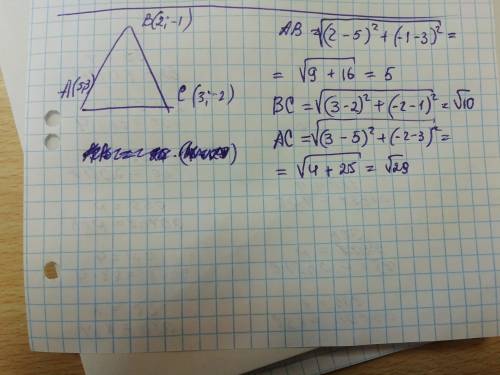 B(2;-1)
A(5;3)
C (3;-2)
AB = √(2-5)² + (-1-3)² =
= √9 + 16 = 5
BC = √(3-2)² + (-2-1)² = √10
AC = √(3-5)² + (-2-3)² =
= √4 + 25 = √29